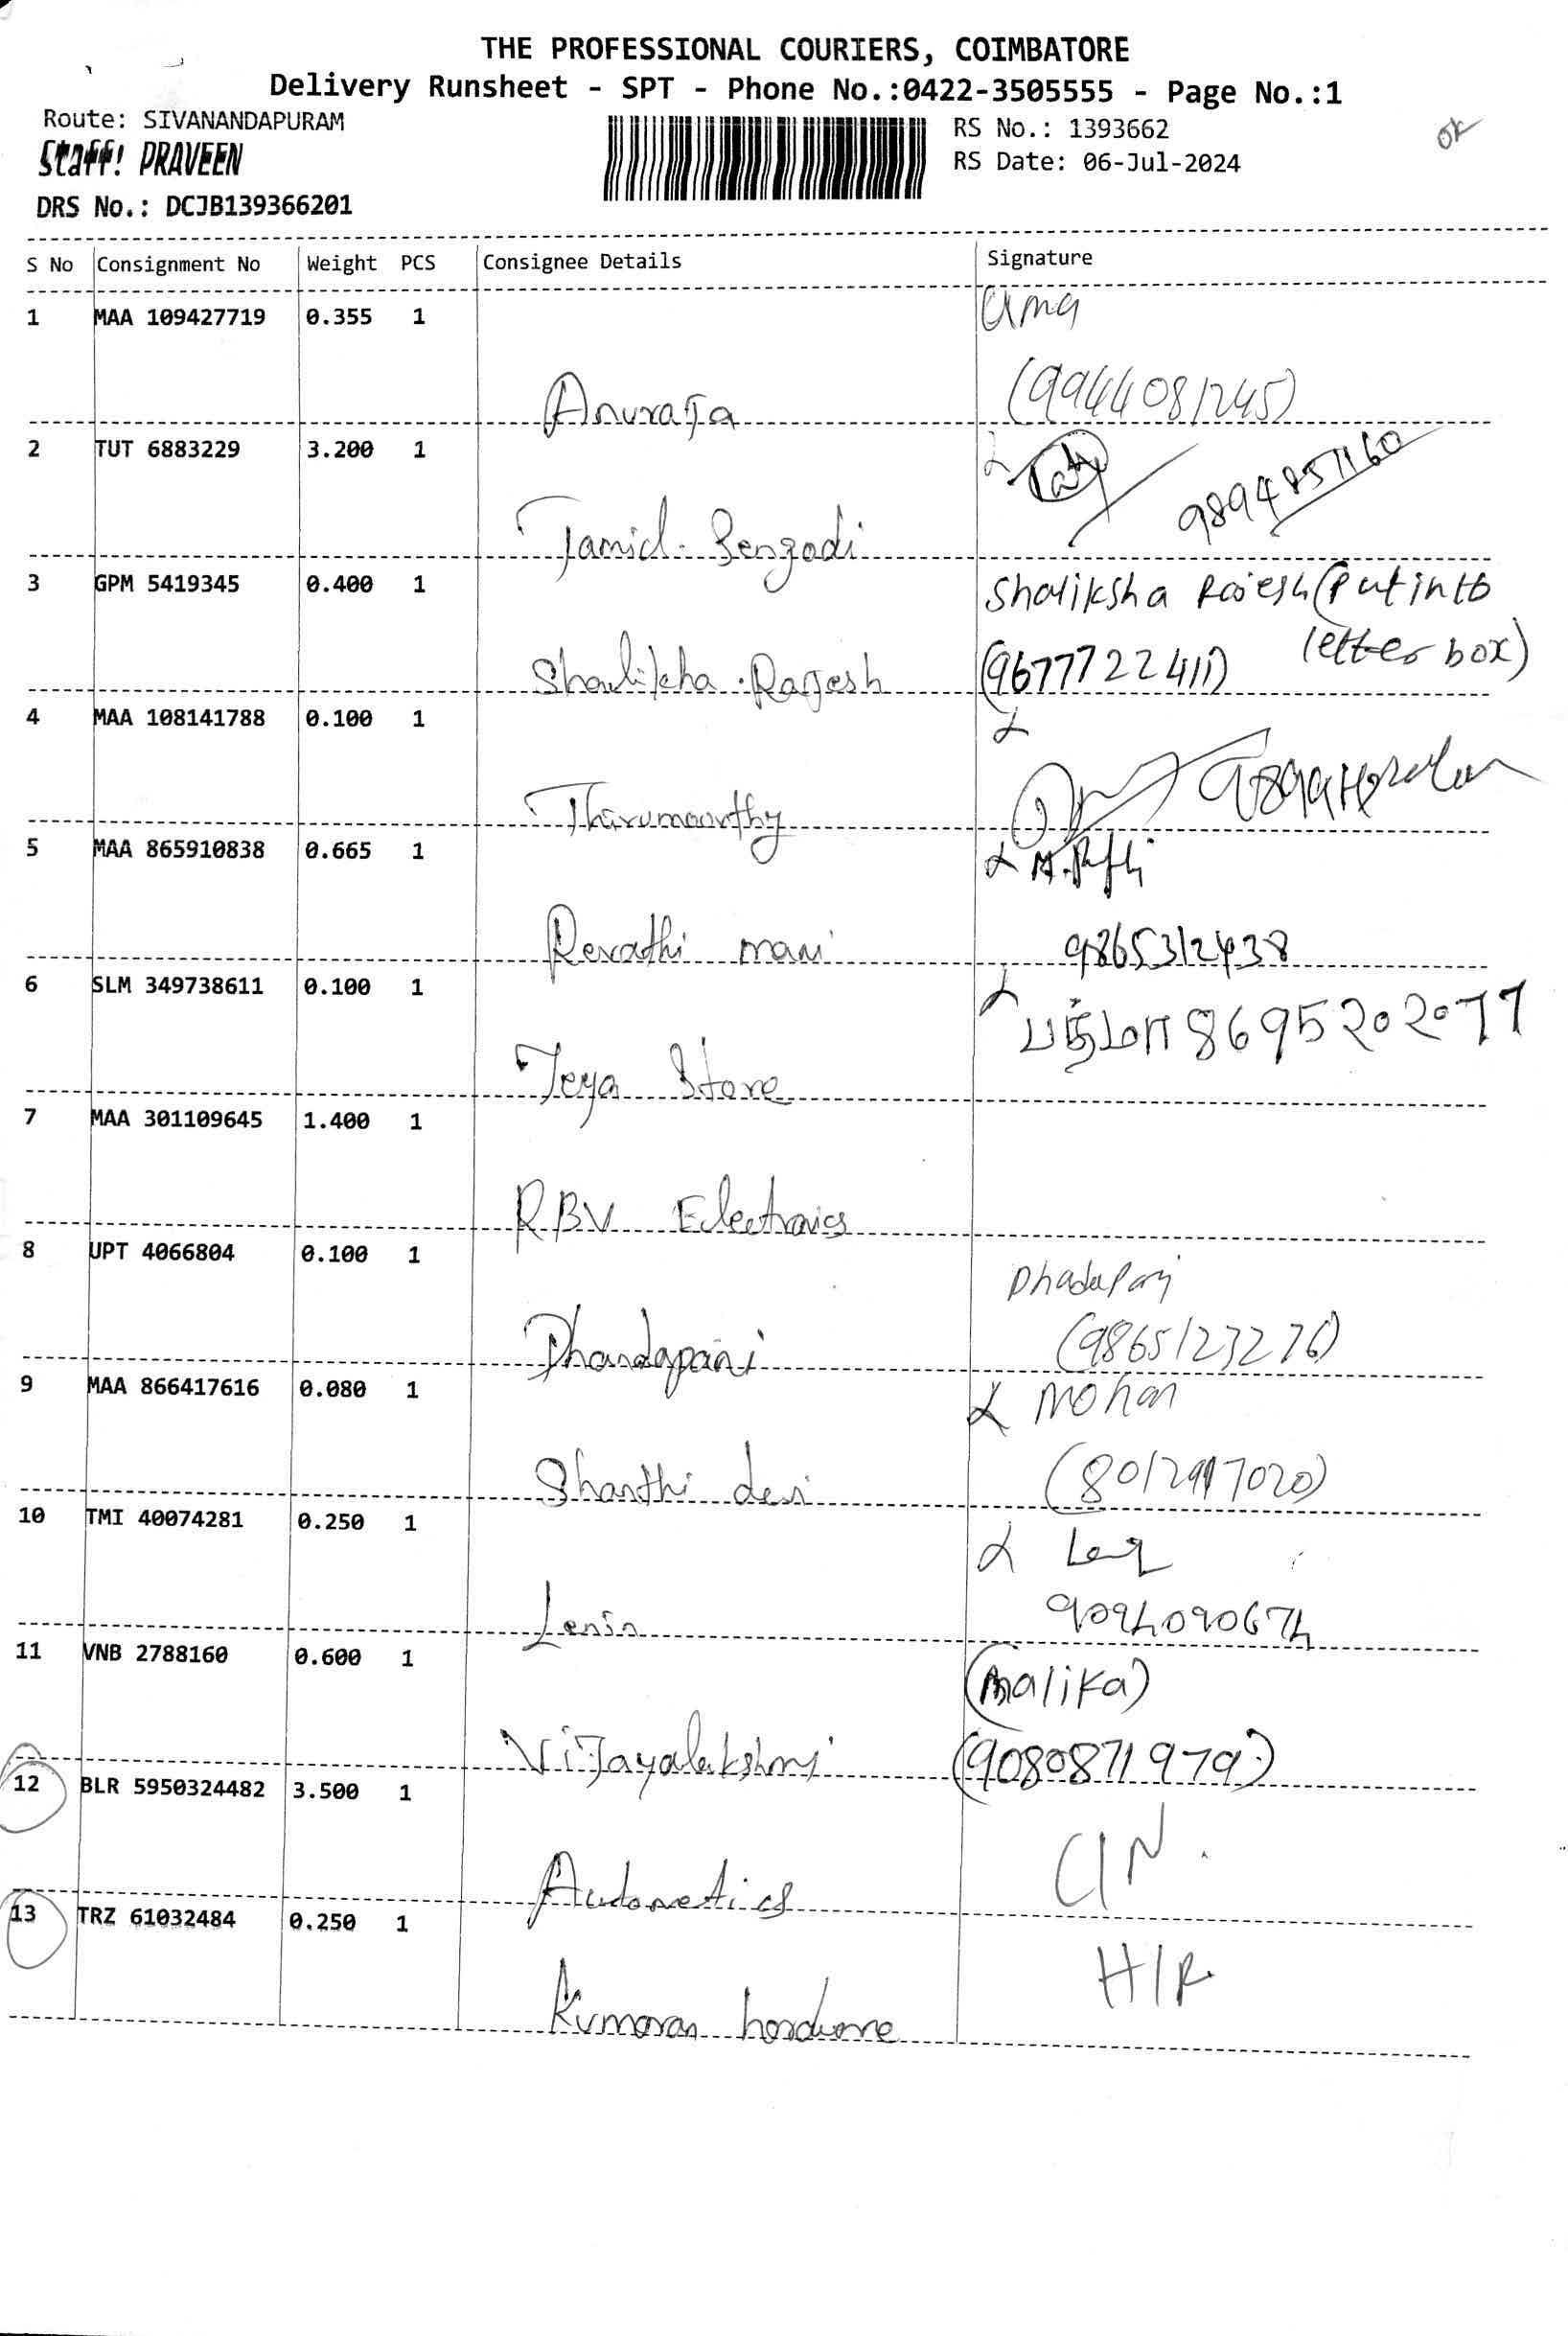 THE PROFESSIONAL COURIERS, COIMBATORE
Delivery Runsheet - SPT - Phone No.:0422-3505555 - Page No.:1
Route: SIVANANDAPURAM
RS No.: 1393662
ok
Staff: PRAVEEN
RS Date: 06-Jul-2024
DRS No.: DCJB139366201
S No Consignment No Weight PCS Consignee Details Signature
1 MAA 109427719 0.355 1 Uma
Anuraja (9944081245)
2 TUT 6883229 3.200 1
9894851160
Tamil Sengodi
3 GPM 5419345 0.400 1 Shaliksha Rajesh (Put into
letter box)
Shalikha Rajesh (9677722411)
4 MAA 108141788 0.100 1
Thirumoorthy
5 MAA 865910838 0.665 1
Revathi mani 9865312438
6 SLM 349738611 0.100 1 பத்மா 8695202077
Jeya Store
7 MAA 301109645 1.400 1
RBV Electronics
8 UPT 4066804 0.100 1 Dhadapani
Dhandapani (9865123276)
9 MAA 866417616 0.080 1 Mohan
Shanthi devi
10 TMI 40074281 0.250 1
Lenin 9094090674
11 VNB 2788160 0.600 1 (Malika)
Vijayalakshmi (9080871979)
12 BLR 5950324482 3.500 1
Audometics C/N.
13 TRZ 61032484 0.250 1
H/R
Kumaran hardware